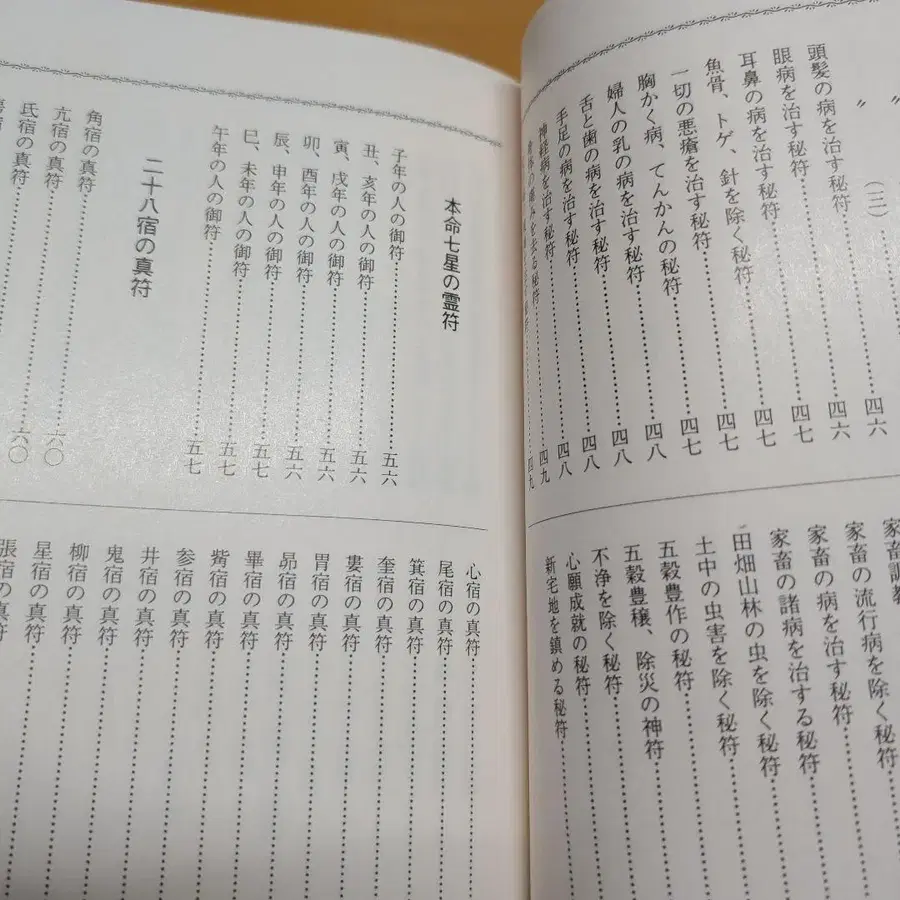 〃
〃 (三)……四六
頭髪の病を治す秘符……四六
眼病を治す秘符……四七
耳鼻の病を治す秘符……四七
魚骨、トゲ、針を除く秘符……四七
一切の悪瘡を治す秘符……四七
胸かく病、てんかんの秘符……四八
婦人の乳の病を治す秘符……四八
舌と歯の病を治す秘符……四八
手足の病を治す秘符……四八
神経病を治す秘符……四九
身体の痛みを去る秘符……四九
家畜調教
家畜の流行病を除く秘符……
家畜の病を治す秘符……
家畜の諸病を治する秘符……
田畑山林の虫を除く秘符……
土中の虫害を除く秘符……
五穀豊作の秘符……
五穀豊穣、除災の神符……
不浄を除く秘符……
心願成就の秘符……
新宅地を鎮める秘符……
本命七星の霊符
子年の人の御符……五六
丑、亥年の人の御符……五六
寅、戌年の人の御符……五六
卯、酉年の人の御符……五六
辰、申年の人の御符……五七
巳、未年の人の御符……五七
午年の人の御符……五七
二十八宿の真符
角宿の真符……六〇
亢宿の真符……六〇
氐宿の真符……六〇
心宿の真符……
尾宿の真符……
箕宿の真符……
奎宿の真符……
婁宿の真符……
胃宿の真符……
昴宿の真符……
畢宿の真符……
觜宿の真符……
参宿の真符……
井宿の真符……
鬼宿の真符……
柳宿の真符……
星宿の真符……
張宿の真符